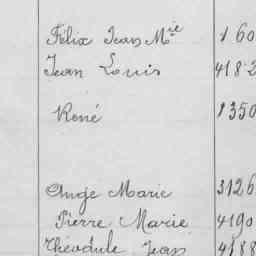 Félix Jean Mie 160
Jean Louis 4182
René 1350
Ange Marie 3126
Pierre Marie 4190
Théodule Jean 4188